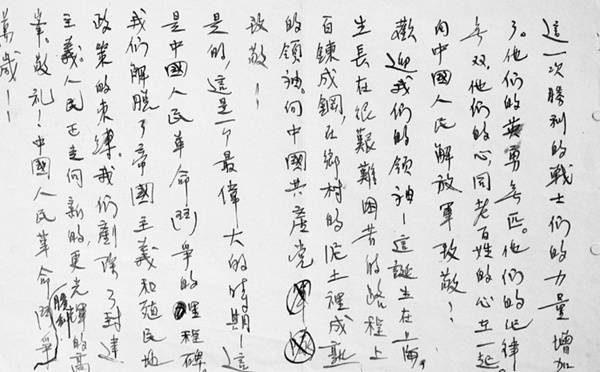 這一次勝利的戰士们的力量增加
了。他们的英勇無匹。他们的纪律
無双。他们的心同老百姓的心在一起。
向中國人民解放軍致敬！
歡迎我们的领袖——這誕生在上海，
生長在很艱難困苦的路程上
百鍊成鋼，在鄉村的泥土裡成熟
的领袖。向中國共產党
致敬！
是的，這是一个最偉大的時期！這
是中國人民革命鬥爭的里程碑。
我们解脫了帝國主義和殖民地
政策的束縛。我们剷除了封建
主義。人民正走向新的，更光輝的高
峯。敬礼！中國人民革命鬥爭
勝利
萬歲！